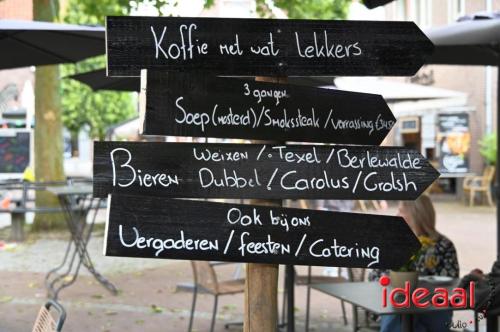 Koffie met wat lekkers
3 gangen
Soep (mosterd) / Smokssteak / verrassing €34,50
Bieren
Weixen / Texel / Berlewalde
Dubbel / Carolus / Grolsh
Ook bij ons
Vergaderen / feesten / Catering
ideaal